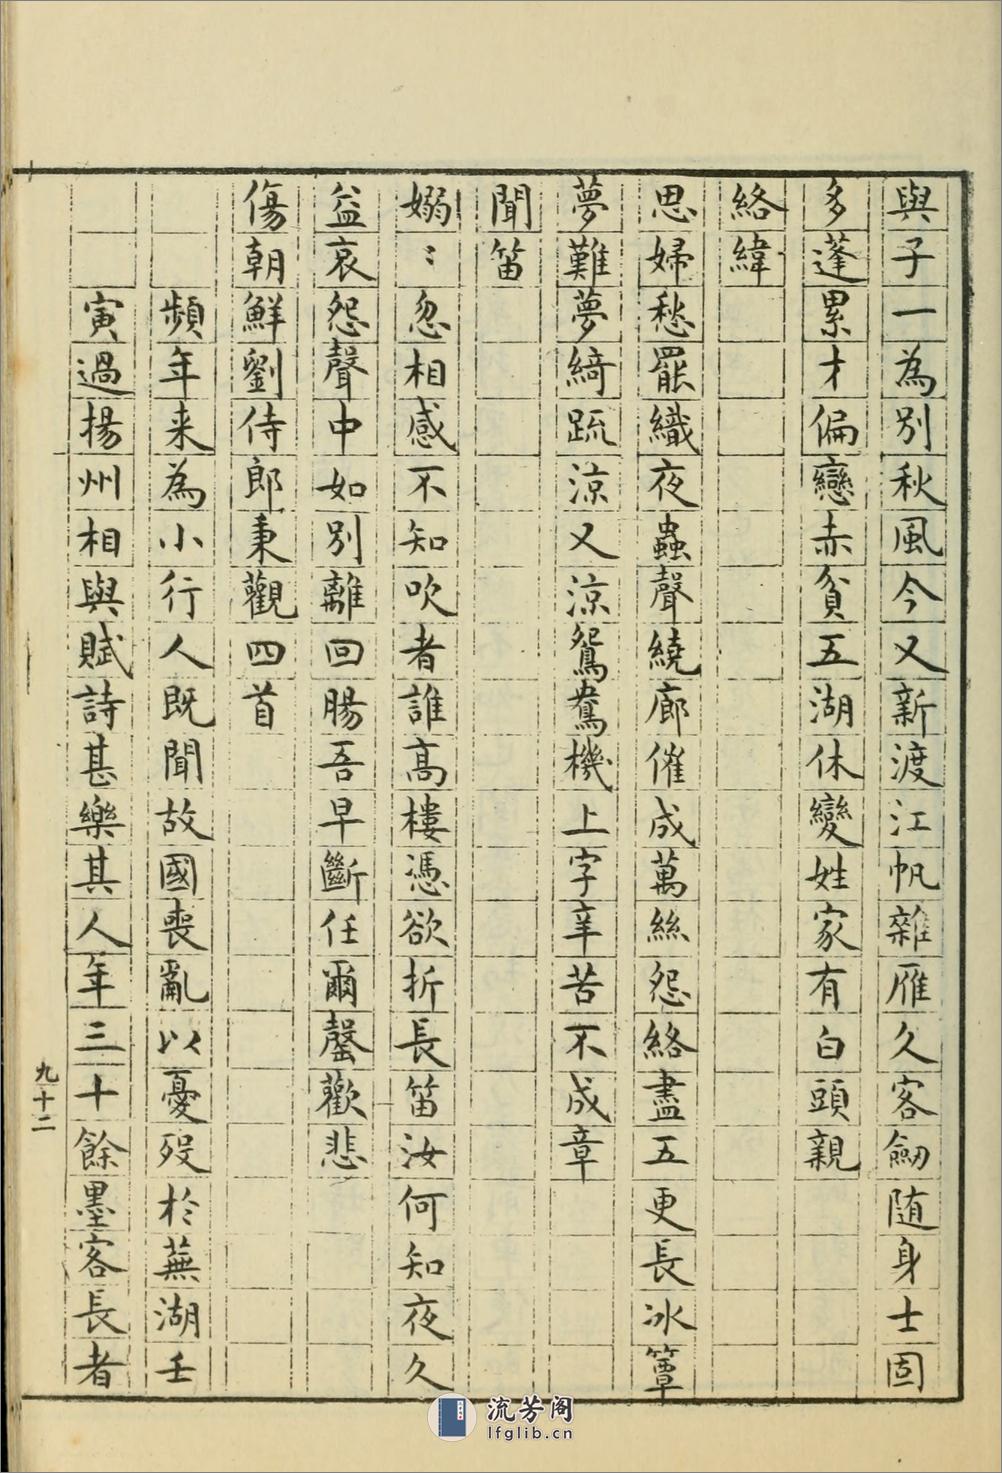 與子一為別秋風今又新渡江帆雜雁久客劒随身士固
多蓬累才偏戀赤貧五湖休變姓家有白頭親
絡緯
思婦愁罷織夜蟲聲繞廊催成萬絲怨絡盡五更長冰簟
夢難夢綺疏涼又涼鴛鴦機上字辛苦不成章
聞笛
嫋〻忽相感不知吹者誰高樓憑欲折長笛汝何知夜久
益哀怨聲中如別離回腸吾早斷任爾罄歡悲
傷朝鮮劉侍郎秉觀四首
頻年来為小行人既聞故國喪亂以憂歿於蕪湖壬
寅過揚州相與賦詩甚樂其人年三十餘墨客長者
九十二
流芳阁
lfglib.cn